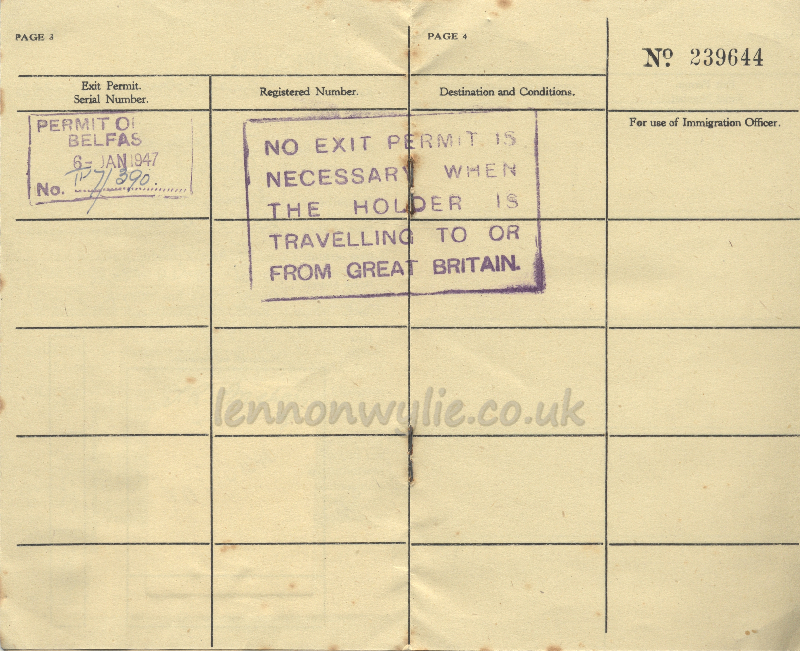 PAGE 3
PAGE 4
Nº 239644
Exit Permit.
Serial Number.
Registered Number.
Destination and Conditions.
For use of Immigration Officer.
PERMIT O
BELFAS
6- JAN 1947
No.
NO EXIT PERMIT IS
NECESSARY WHEN
THE HOLDER IS
TRAVELLING TO OR
FROM GREAT BRITAIN.
lennonwylie.co.uk